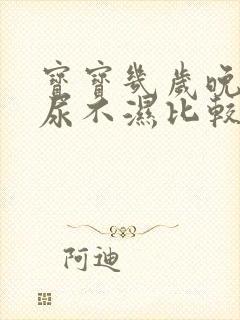 寶寶幾歲晚
尿不濕比較
阿迪